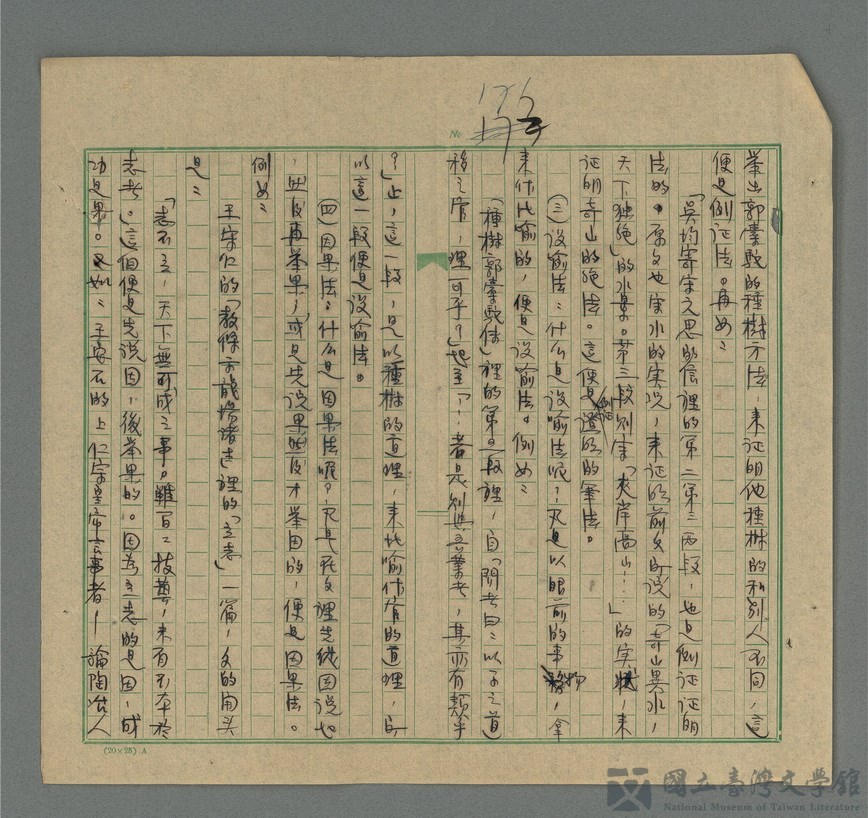 176
№
举出郭橐駝的種樹方法，来证明他種樹的和别人不同，這
便是例证法。再如：
「吳均寄宋元思的信裡的第二第三两段，也是例证证明
法的。原文也寫水的实况，来证明前文所说的「奇山異水，
天下独绝」的水景。第三段则寫「夾岸高山……」的实狀，来
证明奇山的绝佳。這便是例证的筆法。
㊂设喻法：什么是设喻法呢？凡是以眼前的事物，拿
来作比喻的，便是设喻法。例如：
「種樹郭橐駝传」裡的第四段裡，自「問者曰：以子之道
移之官，理可乎？」起至「……若是，则與吾業者，其亦有類乎
？」止，這一段，是以種樹的道理，来比喻作官的道理，所
以這一段便是设喻法。
㊃因果法：什么是因果法呢？凡是在文裡先從因说起
，然後再举果；或是先说果然後才举因的，便是因果法。
例如：
王守仁的「教條示龍場諸生」裡的「立志」一篇，文的開头
是：
「志不立，天下無可成之事。雖百工技藝，未有不本於
志者。」這個便是先说因，後举果的。因為立志的是因，成
功是果。又如：王安石的上仁宗皇帝言事書—論陶冶人
(20×25) A
國立臺灣文學館
National Museum of Taiwan Literature